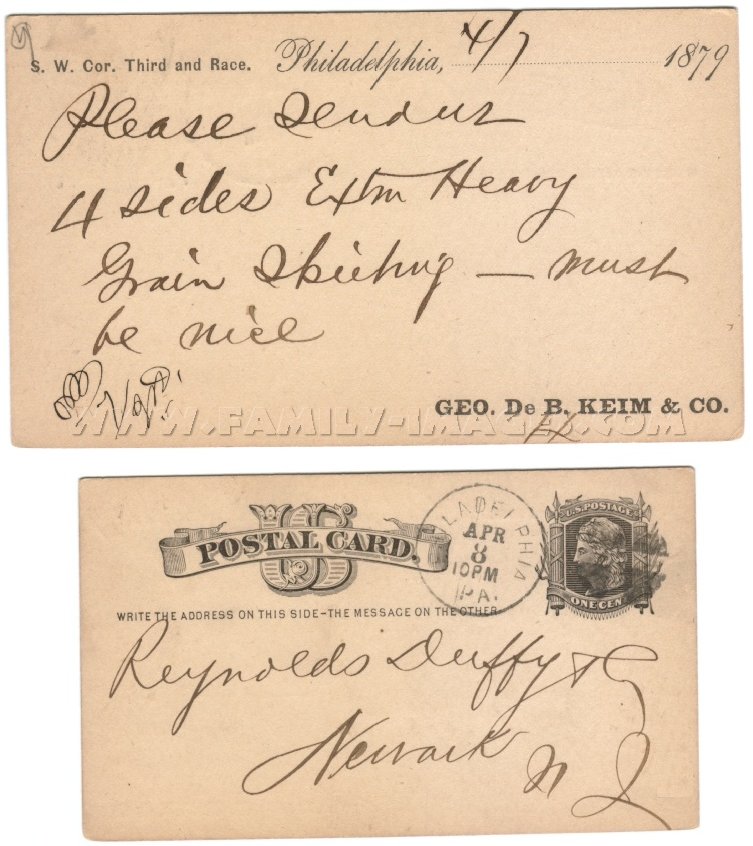 S. W. Cor. Third and Race. Philadelphia, 4/7 1879
Please send us
4 sides Extra Heavy
Grain Skirting — must
be nice
GEO. De B. KEIM & CO.
WWW.FAMILY-IMAGES.COM
US
POSTAL CARD.
PHILADELPHIA
APR
8
10PM
PA.
U.S. POSTAGE
ONE CENT
WRITE THE ADDRESS ON THIS SIDE-THE MESSAGE ON THE OTHER
Reynolds Duffy & Co
Newark N J